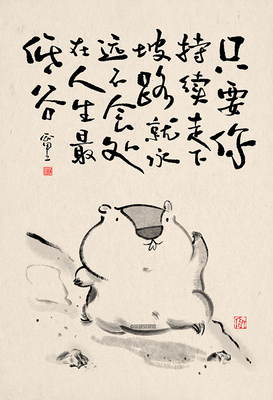 只要你
持续走下
坡路就永
远不会处
在人生最
低谷